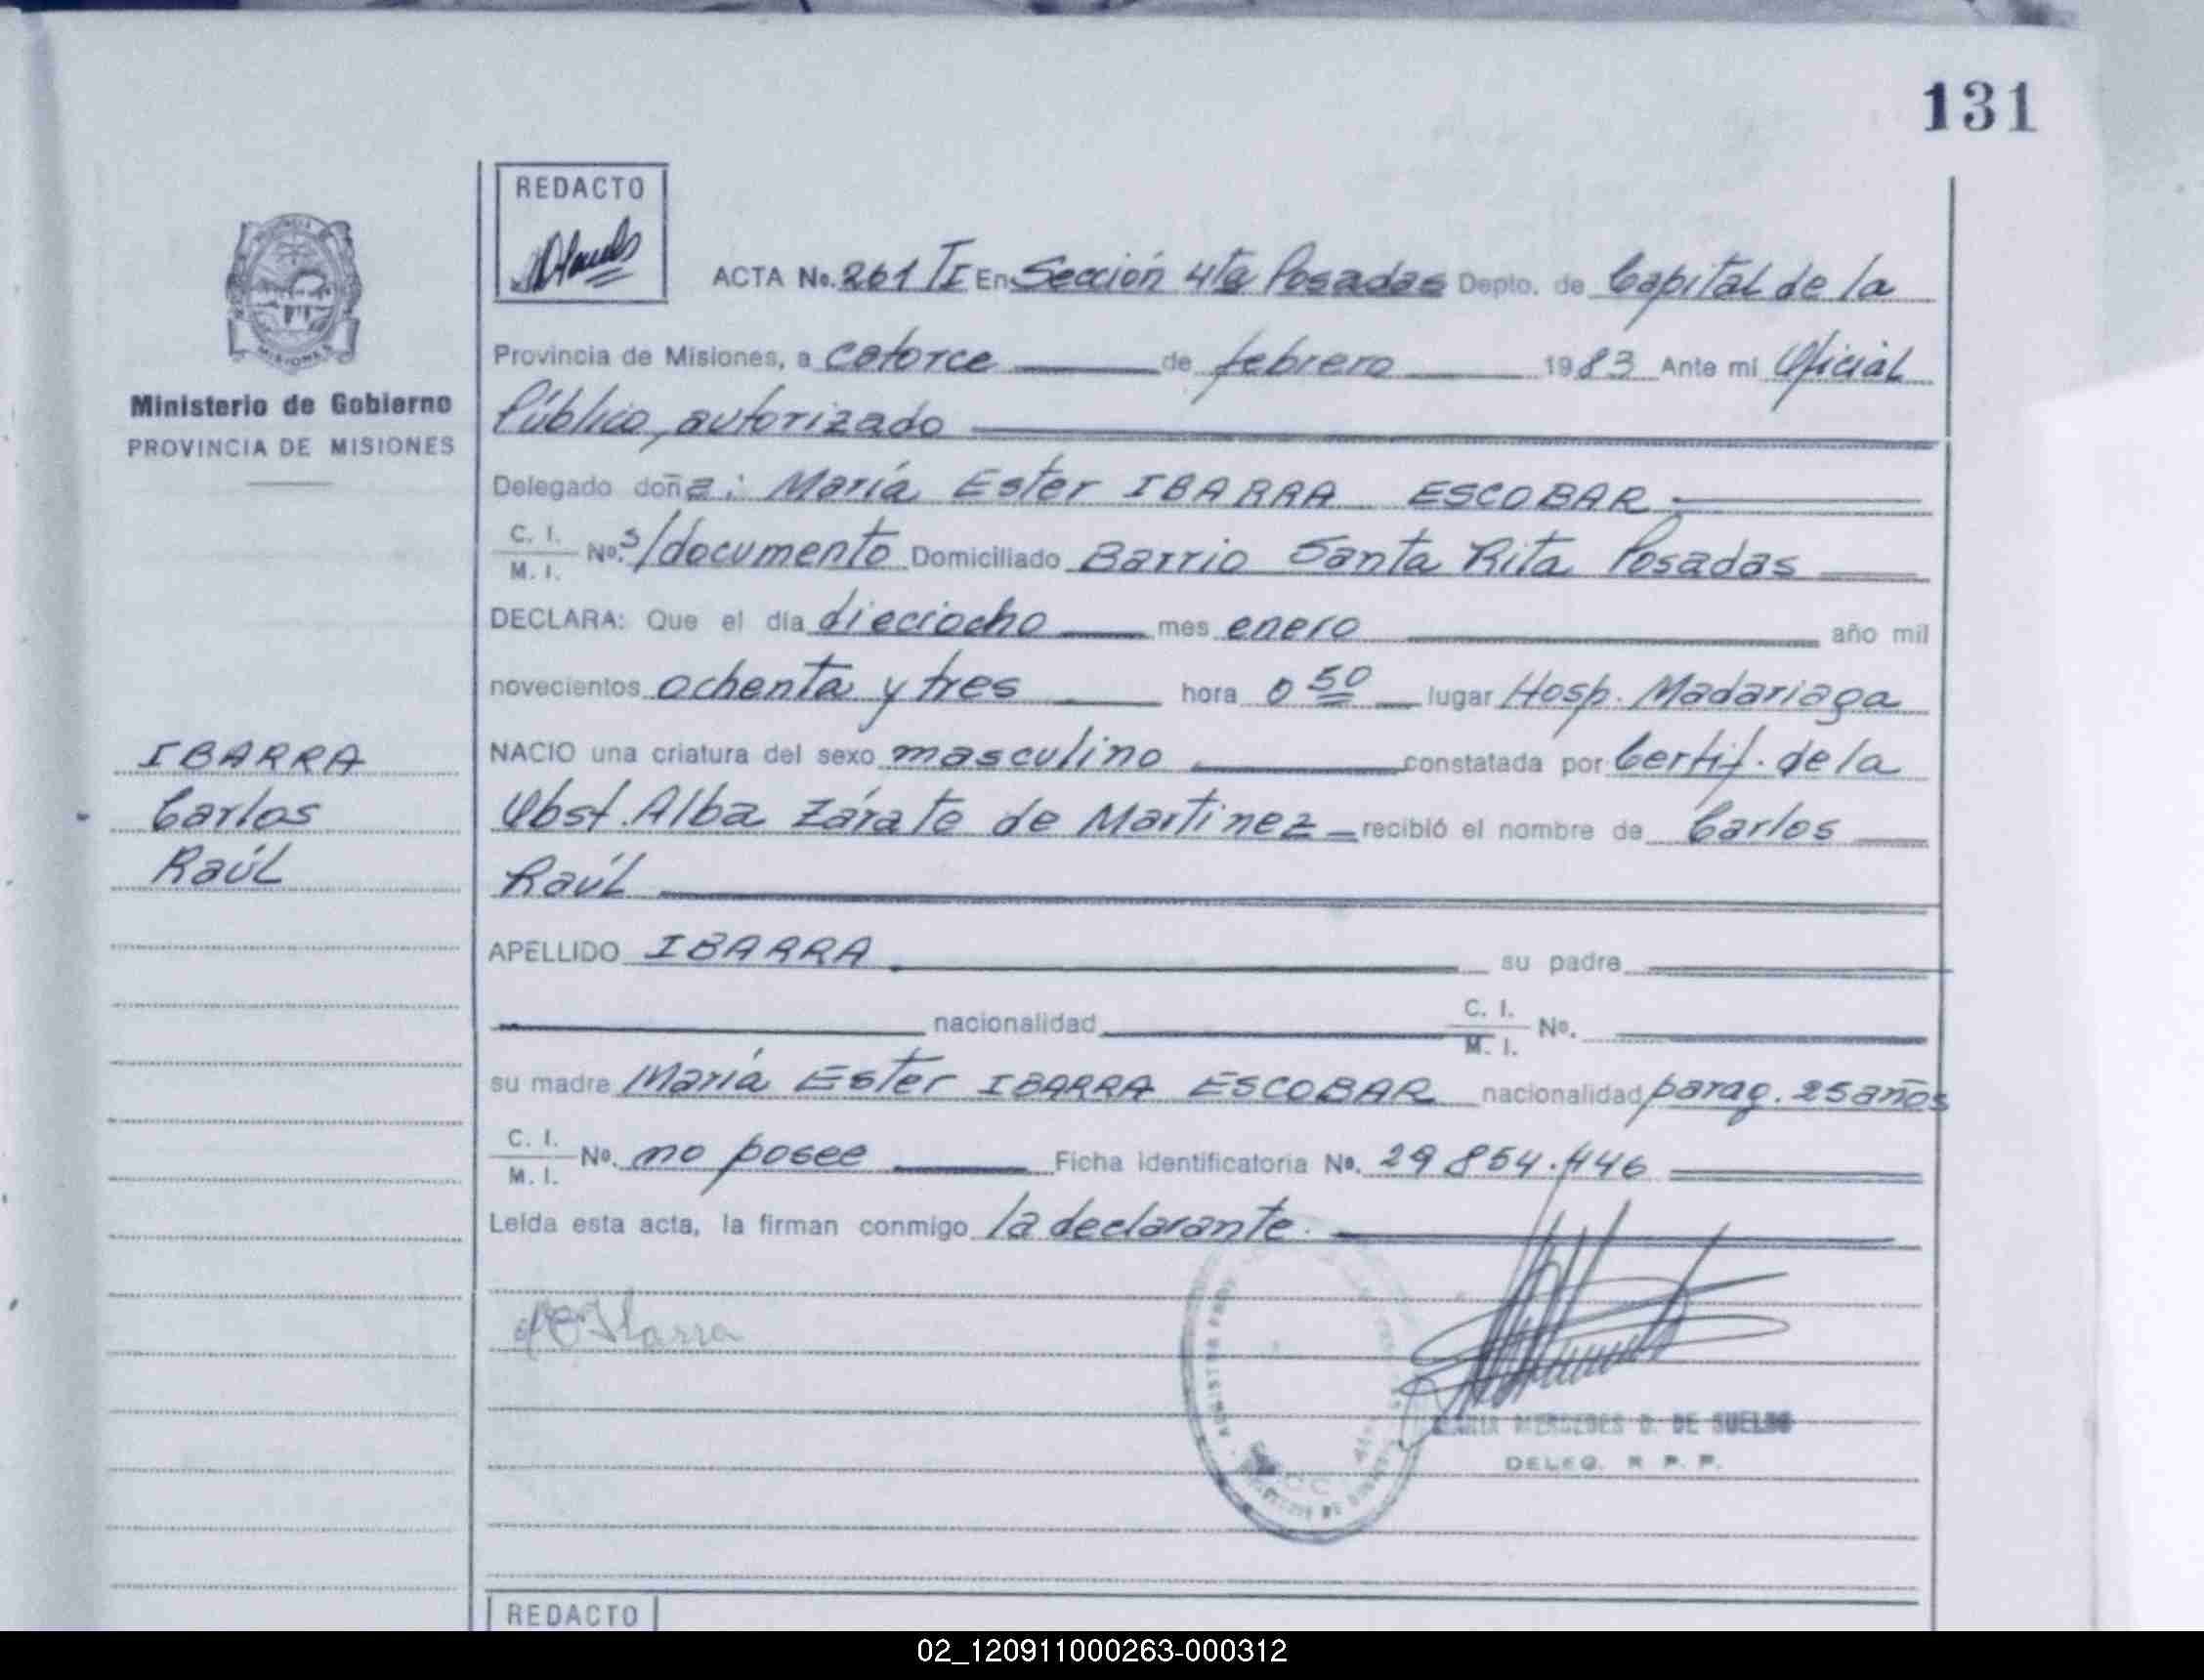 131
REDACTO
ACTA No. 261 TI En Sección 4ta Posadas Depto. de Capital de la
Provincia de Misiones, a catorce de febrero 1983 Ante mi Oficial
Público, autorizado
Ministerio de Gobierno
PROVINCIA DE MISIONES
Delegado doña: María Ester IBARRA ESCOBAR
C. I.
M. I. No. s/documento Domiciliado Barrio Santa Rita Posadas
DECLARA: Que el día dieciocho mes enero año mil
novecientos ochenta y tres hora 0 50 lugar Hosp. Madariaga
IBARRA
Carlos
Raúl
NACIO una criatura del sexo masculino constatada por Certif. de la
Obst. Alba Zárate de Martinez recibió el nombre de Carlos
Raúl
APELLIDO IBARRA su padre
nacionalidad C. I.
M. I. No.
su madre María Ester IBARRA ESCOBAR nacionalidad parag. 25 años
C. I.
M. I. No. no posee Ficha identificatoria No. 29 854.446
Leída esta acta, la firman conmigo la declarante.
Ibarra
MARIA MERCEDES D. DE SUELDO
DELEG. R. P. P.
REDACTO
02_120911000263-000312